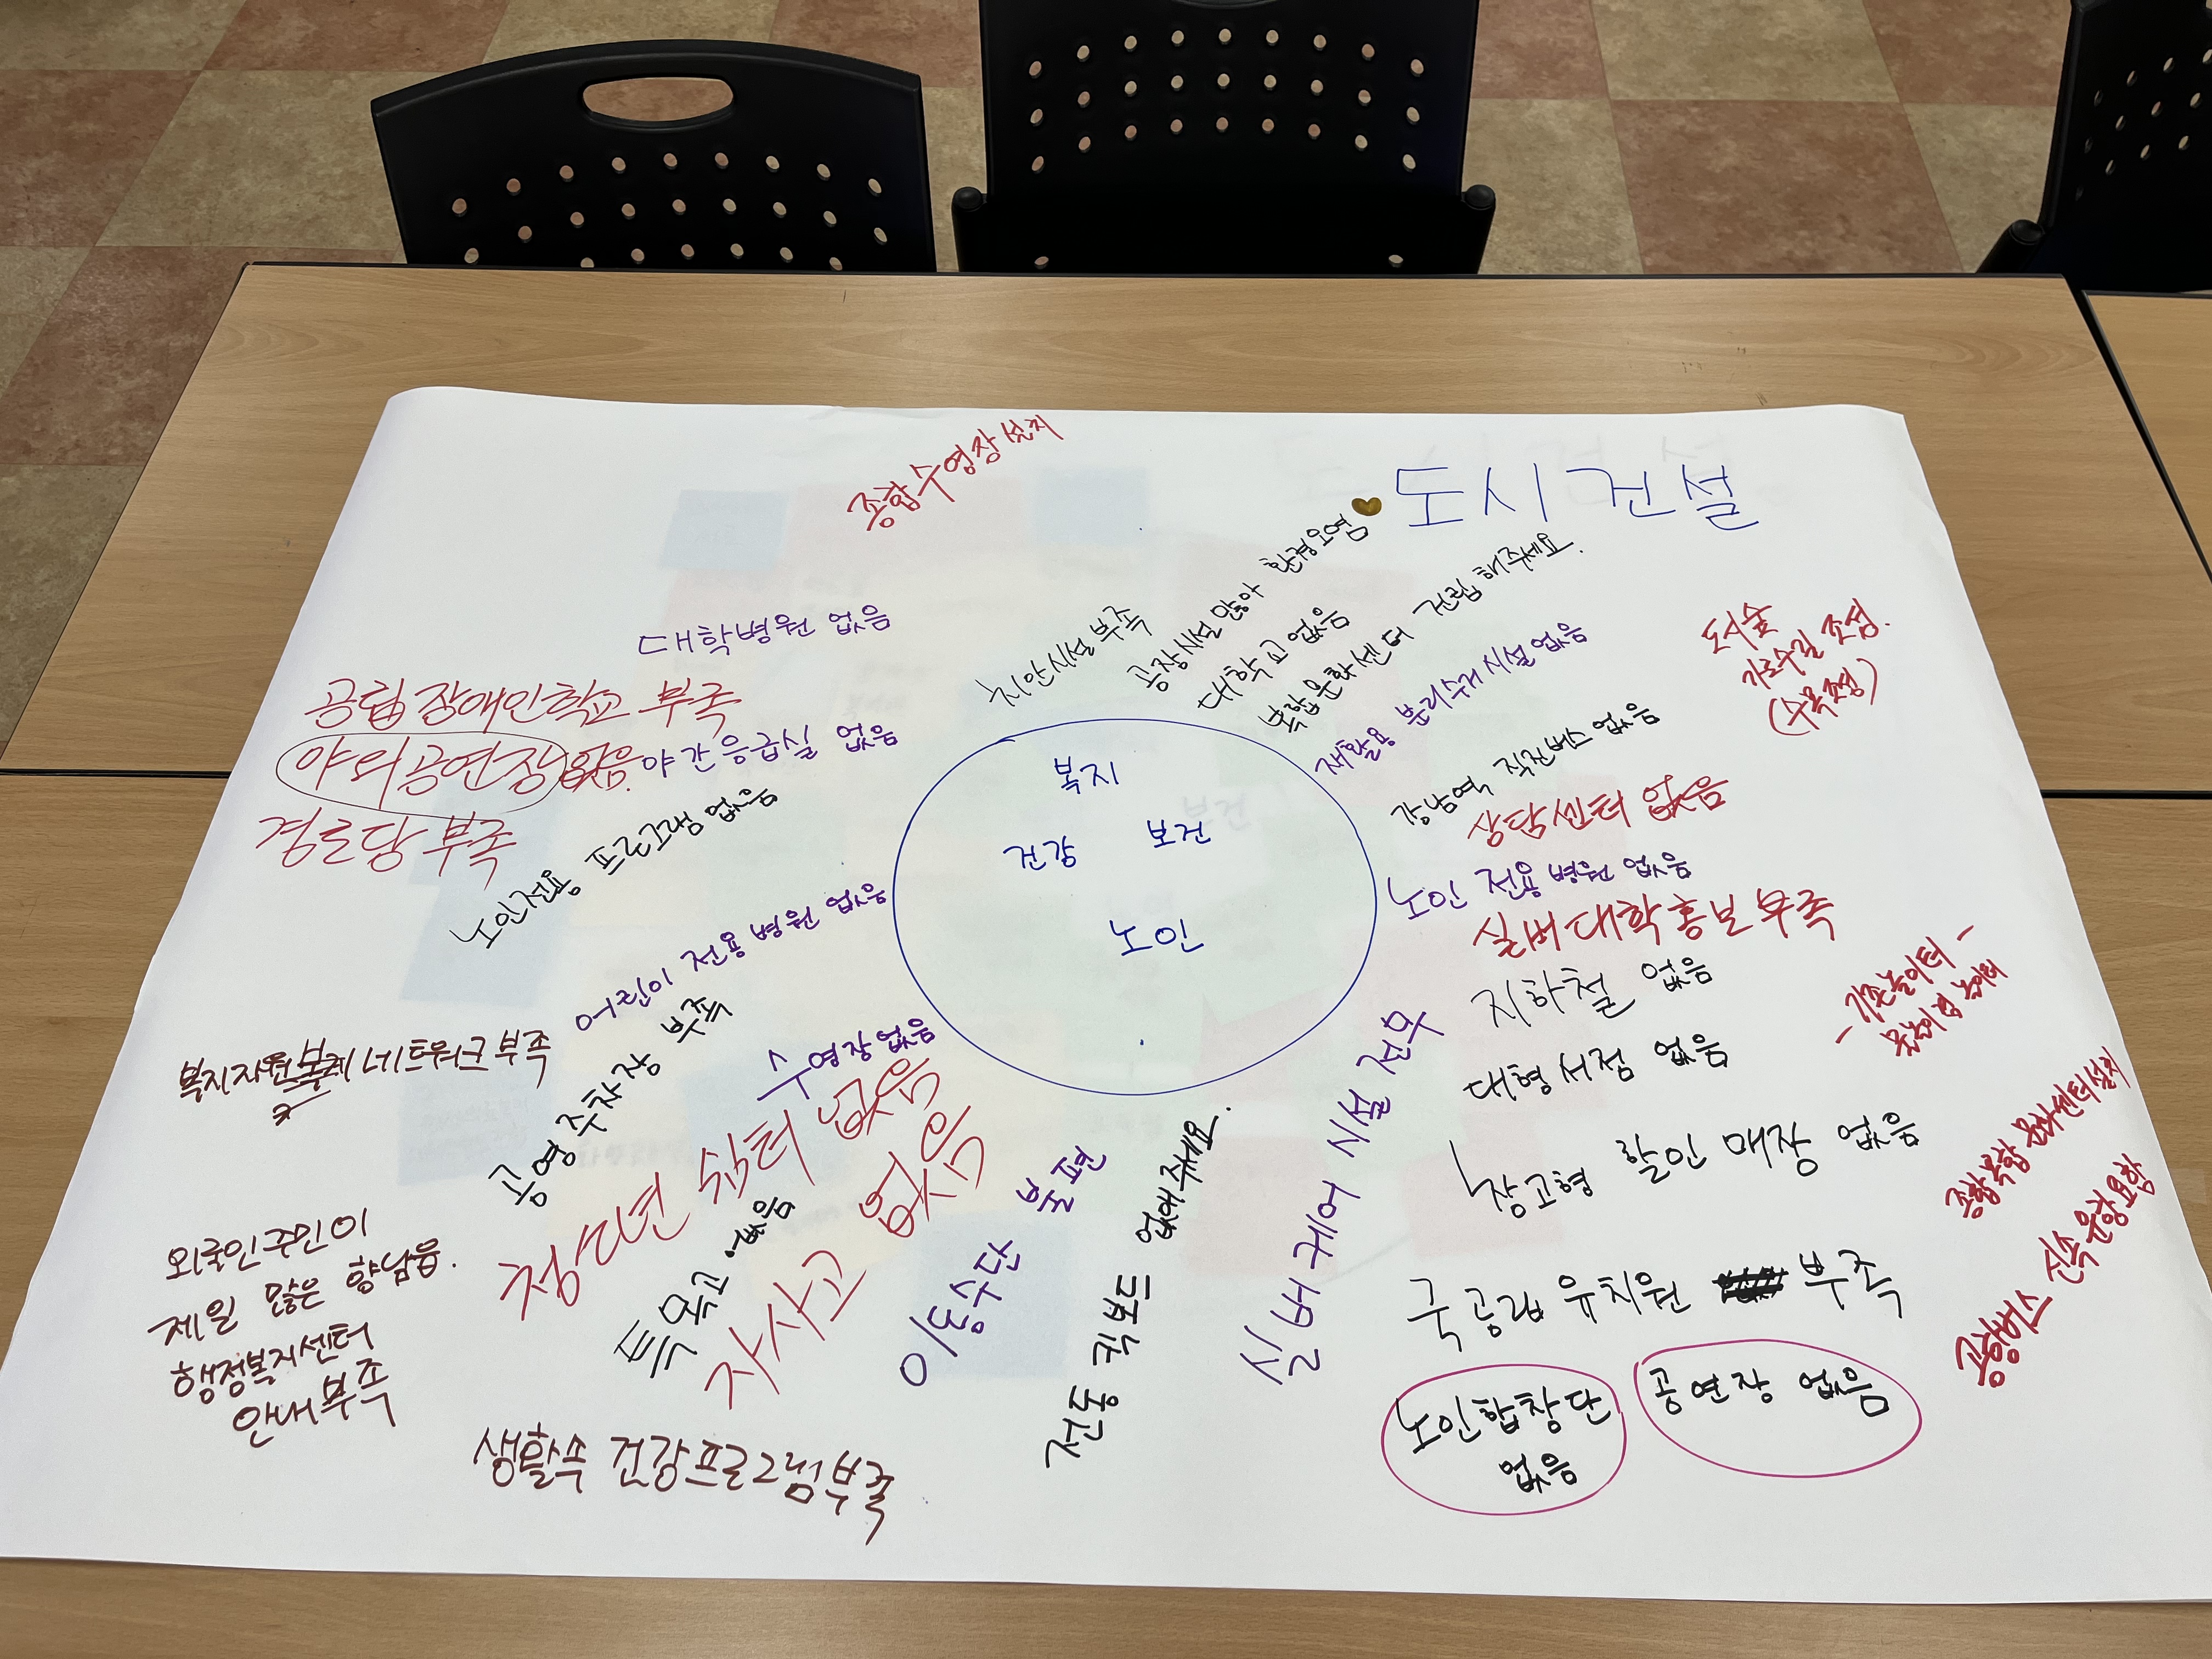 종합수영장 설치
도시건설
대학병원 없음
치안시설 부족
공장시설 많아 환경오염
대학교 없음
복합문화센터 건립 해주세요.
재활용 분리수거 시설 없음
도시숲
가로수길 조성.
(수목조성)
공립 장애인학교 부족
야외공연장 없음.
야간 응급실 없음
경로당 부족
노인전용 프로그램 없음
강남역 직진버스 없음
상담센터 없음
복지
건강 보건
노인
노인 전용 병원 없음
실버대학 홍보 부족
어린이 전용 병원 없음
지하철 없음
- 기존놀이터 -
놀이터
복지자원 네트워크 부족
공영 주차장 부족
수영장 없음
대형서점 없음
청년 쉼터 없음
특목고 없음
자사고 없음
이동수단 불편
전동 킥보드 없애주세요.
실버케어 시설 전무
창고형 할인 매장 없음
종합복합 문화센터설치
공항버스 신속 운항 요함
외국인 주민이
제일 많은 향남읍.
행정복지센터
안내부족
국공립 유치원 부족
노인합창단
없음
공연장 없음
생활속 건강프로그램 부족